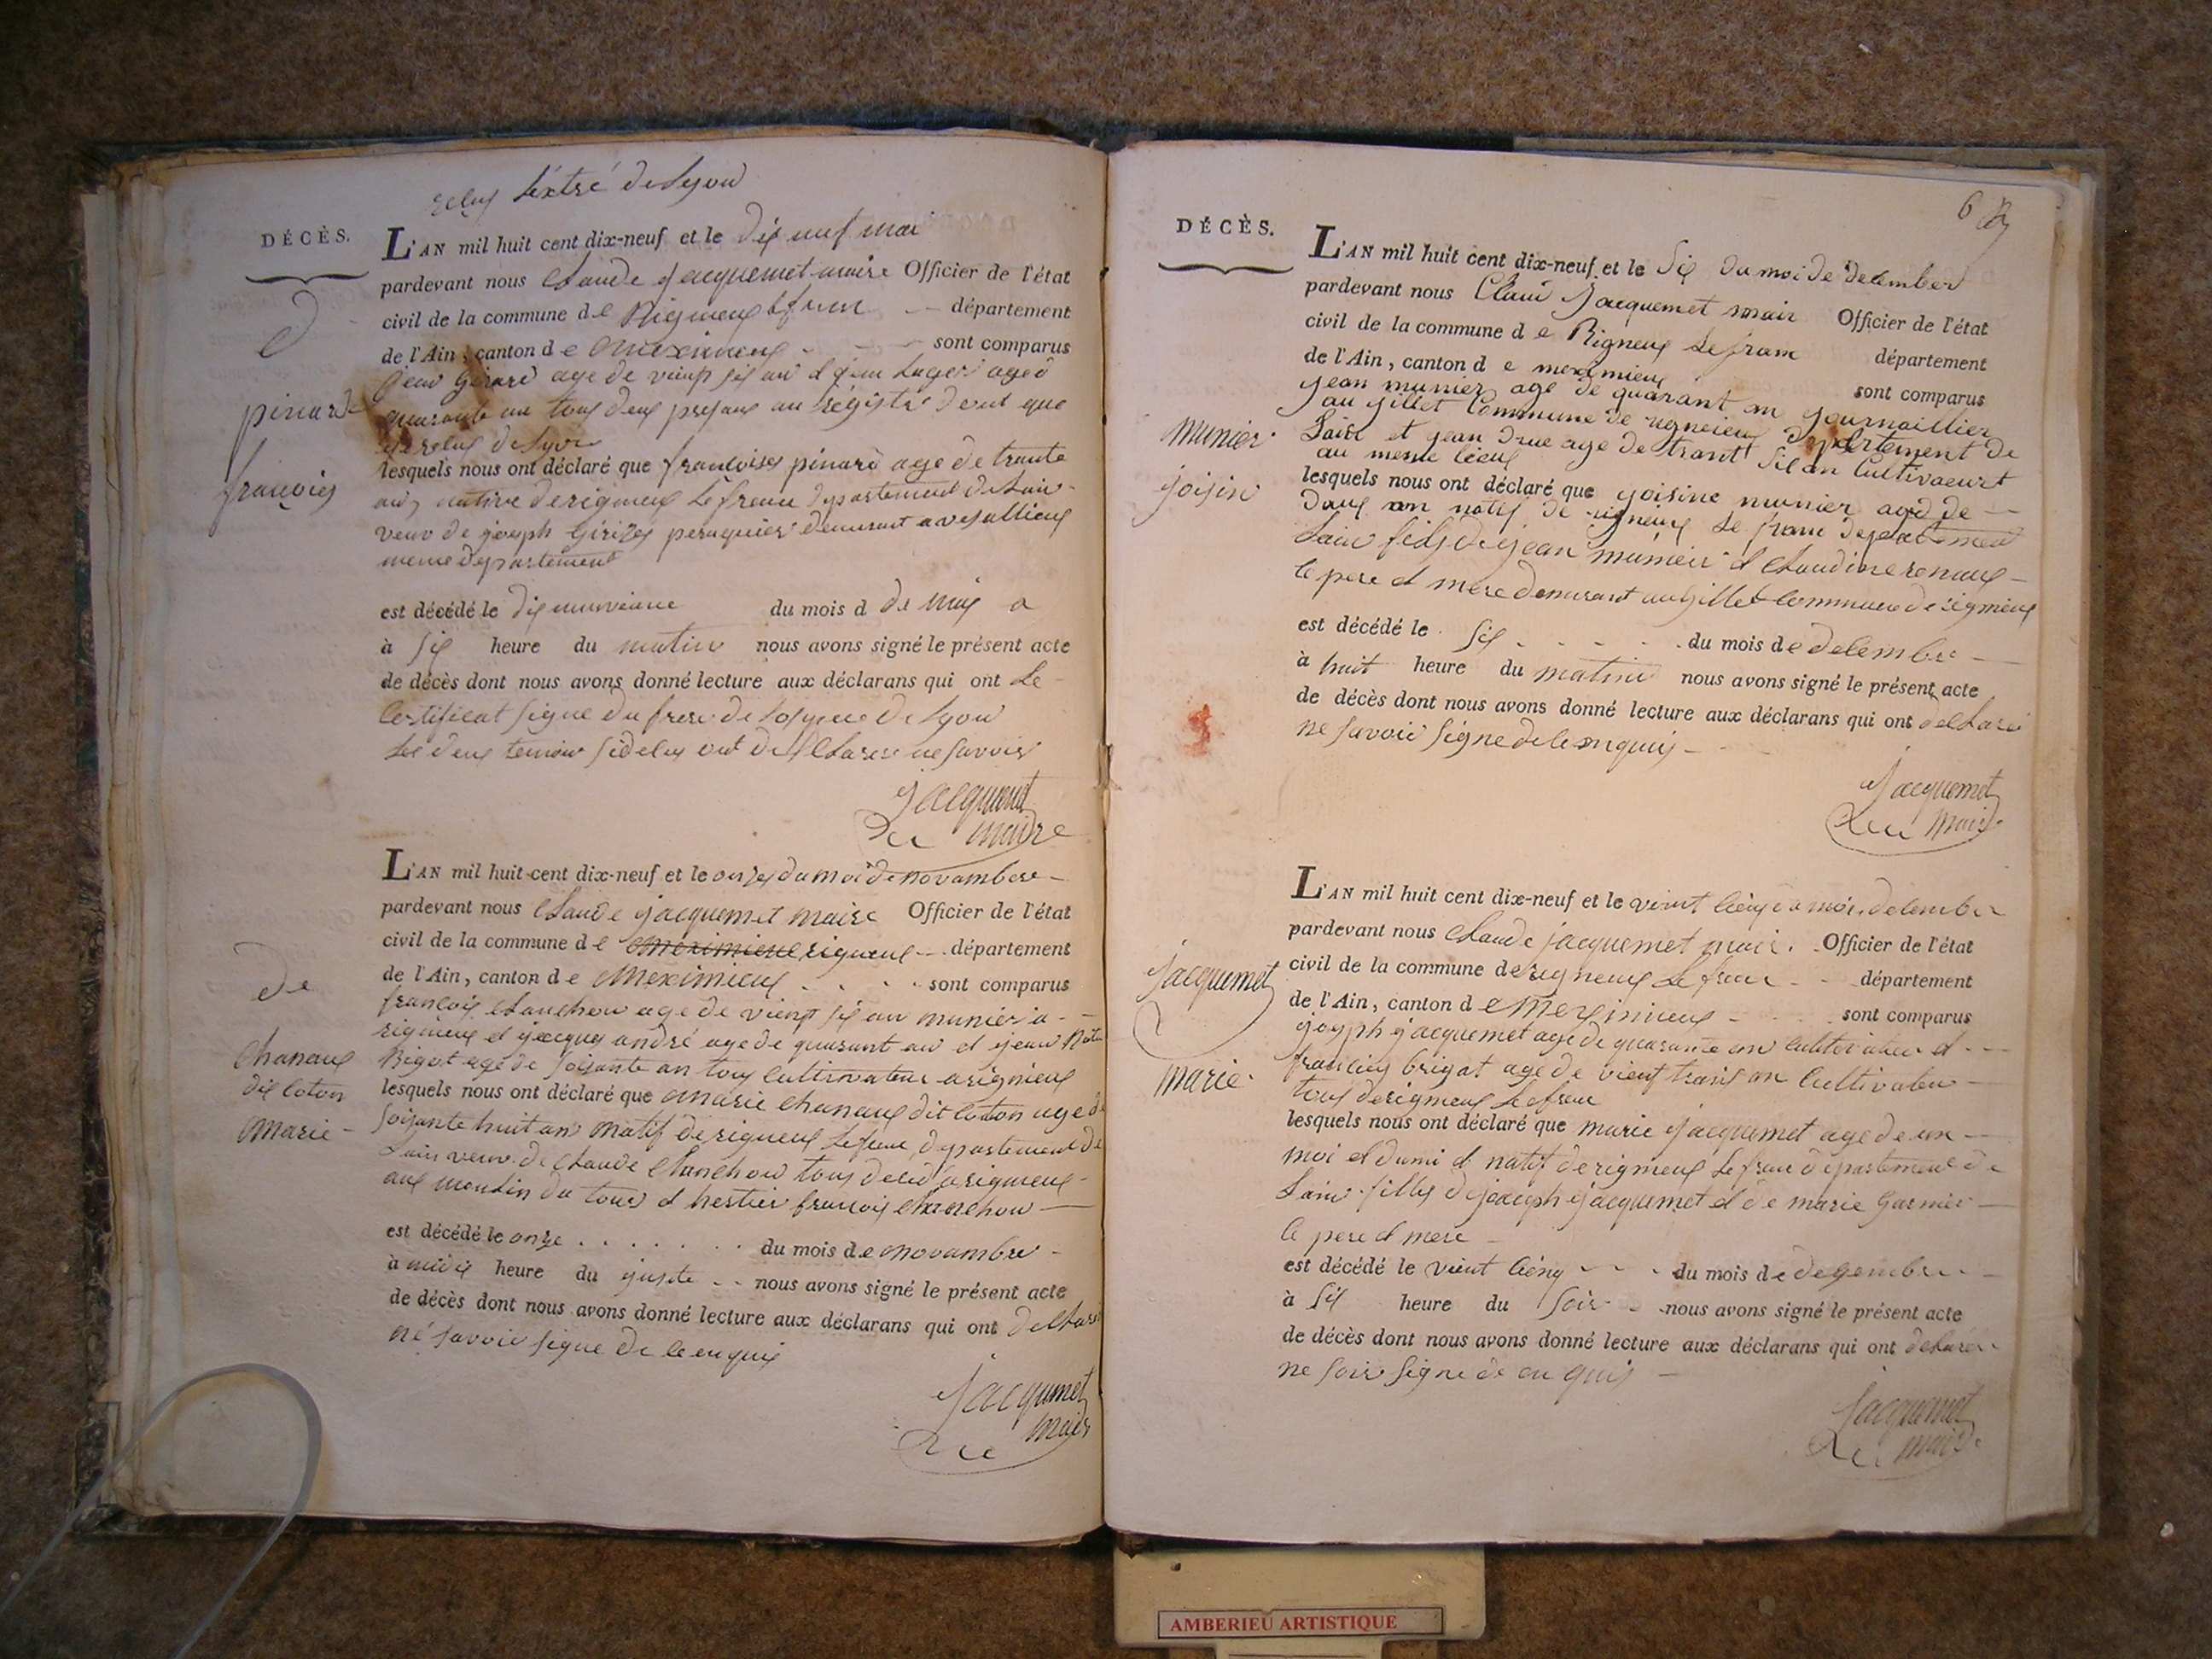 relus Léxtré de Lyon
DÉCÈS.
L'AN mil huit cent dix-neuf et le dix neuf mai
pardevant nous Claude Jacquemet maire Officier de l'état
civil de la commune de département
de l'Ain, canton de Meximieux sont comparus
Jean Girard age de vienp six an
quarante an tous deux au régistre dont que
pinard
françoies
lesquels nous ont déclaré que françoises pinard age de trante
an, native derigneux Lefranc departement de Lain
veuv de joseph peruquier demurant a
meme departement
est décédé le dix neuviene du mois d de maix a
à six heure du matin nous avons signé le présent acte
de décès dont nous avons donné lecture aux déclarans qui ont Le
Certificat signe du frere de Lospice de Lyon
Les deux temoin ont ne savoir
Jacquemet
maire
L'AN mil huit cent dix-neuf et le onzes du moi de novambere
pardevant nous Claude jacquemet maire Officier de l'état
civil de la commune de meximieux rigneux département
de l'Ain, canton de Meximieux sont comparus
de
françois Chanchon age de vienp six an munier a
rigneux et jacques andré age de quarant an et jean
Bigot age de soisante an tous Cultivateur a rignieux
Chanaux
dit Coton
Marie
lesquels nous ont déclaré que Marie Chanaux dit Cotton age de
soisante huit an natif de rigneux Lefranc departement de
Lain veuv. de Claude Chanchon tous deux a rigneux
aux moulin du tour et hertier françois Chanchon
est décédé le onze du mois de novambre
à midis heure du juste nous avons signé le présent acte
de décès dont nous avons donné lecture aux déclarans qui ont
né savoir signe de ce enquis
Jacquemet
mair
6
DÉCÈS.
L'AN mil huit cent dix-neuf et le six du moi de december
pardevant nous Claud Jacquemet mair Officier de l'état
civil de la commune de Rigneux Lefranc département
de l'Ain, canton de meximieux sont comparus
munier
joisin
jean munier age de quarant an journaillier
au jillet Commune de rigneieux departement de
Lain et jean drue age de trant six an Cultivaeurt
au meme lieux
lesquels nous ont déclaré que joisine munier aged de
doux an natif de rigneiux Le franc departement
Lain fils de jean munieir et Claudine renaux
le pere et mere demurant au jillet Commune de rigniux
est décédé le six du mois de decembre
à huit heure du matine nous avons signé le présent acte
de décès dont nous avons donné lecture aux déclarans qui ont declaré
ne savoir signe de ce enquis
Jacquemet
mair
L'AN mil huit cent dix-neuf et le vient cienq moi december
pardevant nous Claude jacquemet mair. Officier de l'état
civil de la commune derigneux Le franc département
de l'Ain, canton de Meximieux sont comparus
Jacquemet
marie
joseph jacquemet age de quarante an cultivateur et
françoies brigat age de vient trois an Cultivateur
tous derigneux Lefranc
lesquels nous ont déclaré que marie jacquemet age de un
moi et dumi et natif derigneux Lefranc departement de
Lain filles de joseph jacquemet et de marie Garnier
le pere et mere
est décédé le vient cienq du mois de desembre
à six heure du soir nous avons signé le présent acte
de décès dont nous avons donné lecture aux déclarans qui ont declaré
ne soir signe de en quis
Jacquemet
maire
AMBERIEU ARTISTIQUE